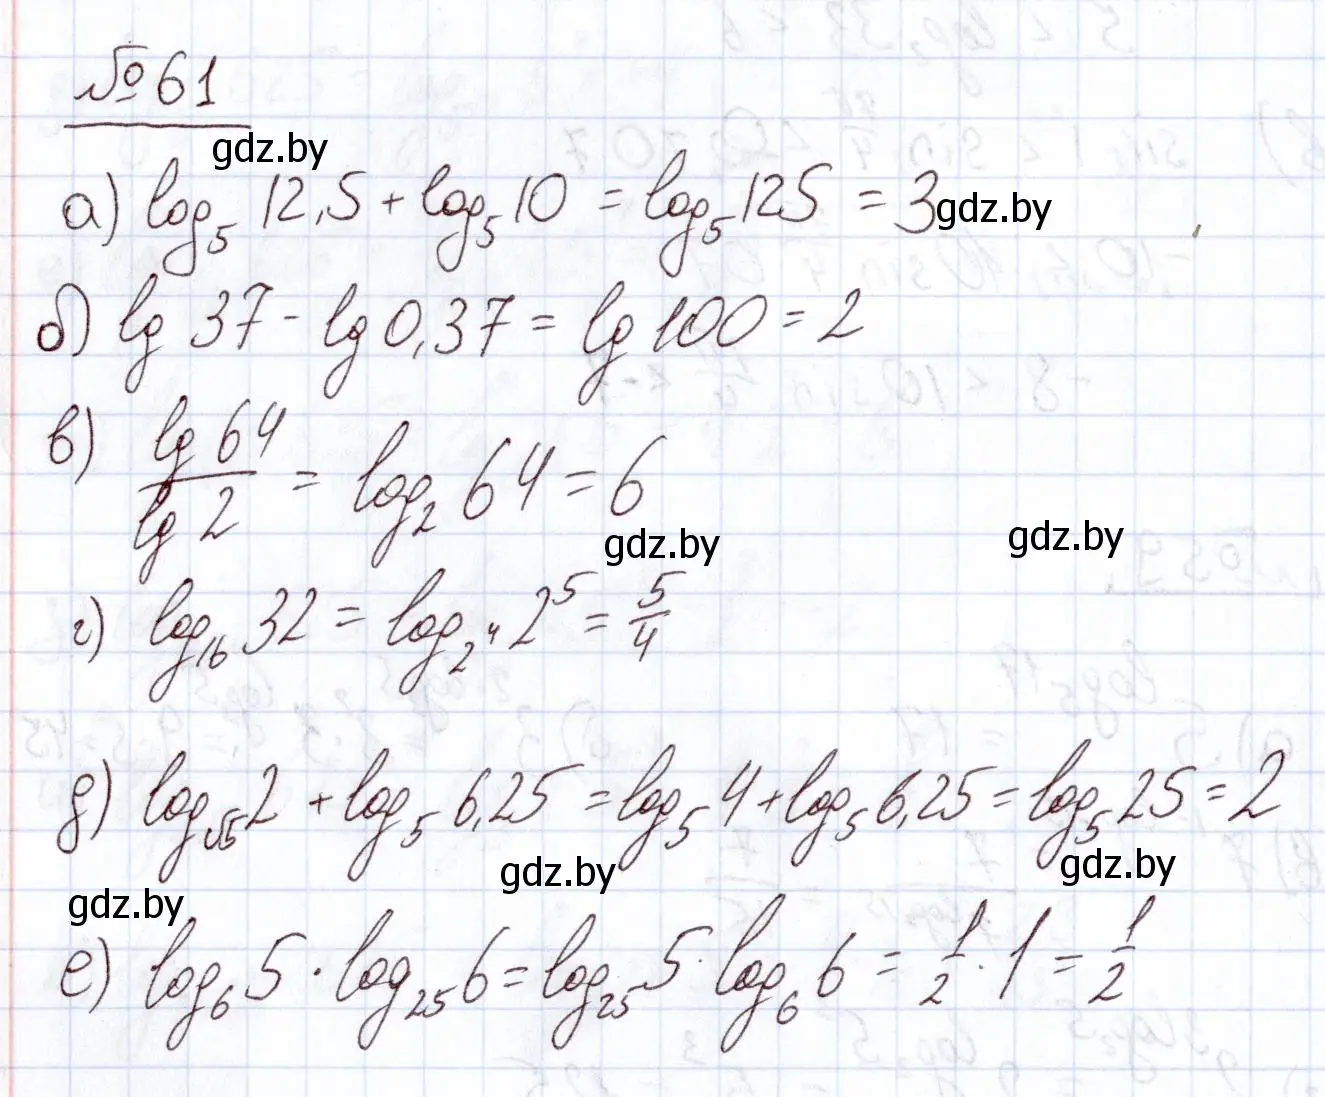 №61
gdz.by
а) log₅ 12,5 + log₅ 10 = log₅ 125 = 3
gdz.by
б) lg 37 - lg 0,37 = lg 100 = 2
в) lg 64 / lg 2 = log₂ 64 = 6
gdz.by
gdz.by
г) log₁₆ 32 = log_{2⁴} 2⁵ = 5/4
д) log_{√5} 2 + log₅ 6,25 = log₅ 4 + log₅ 6,25 = log₅ 25 = 2
gdz.by
gdz.by
gdz.by
е) log₆ 5 · log₂₅ 6 = log₂₅ 5 · log₆ 6 = 1/2 · 1 = 1/2